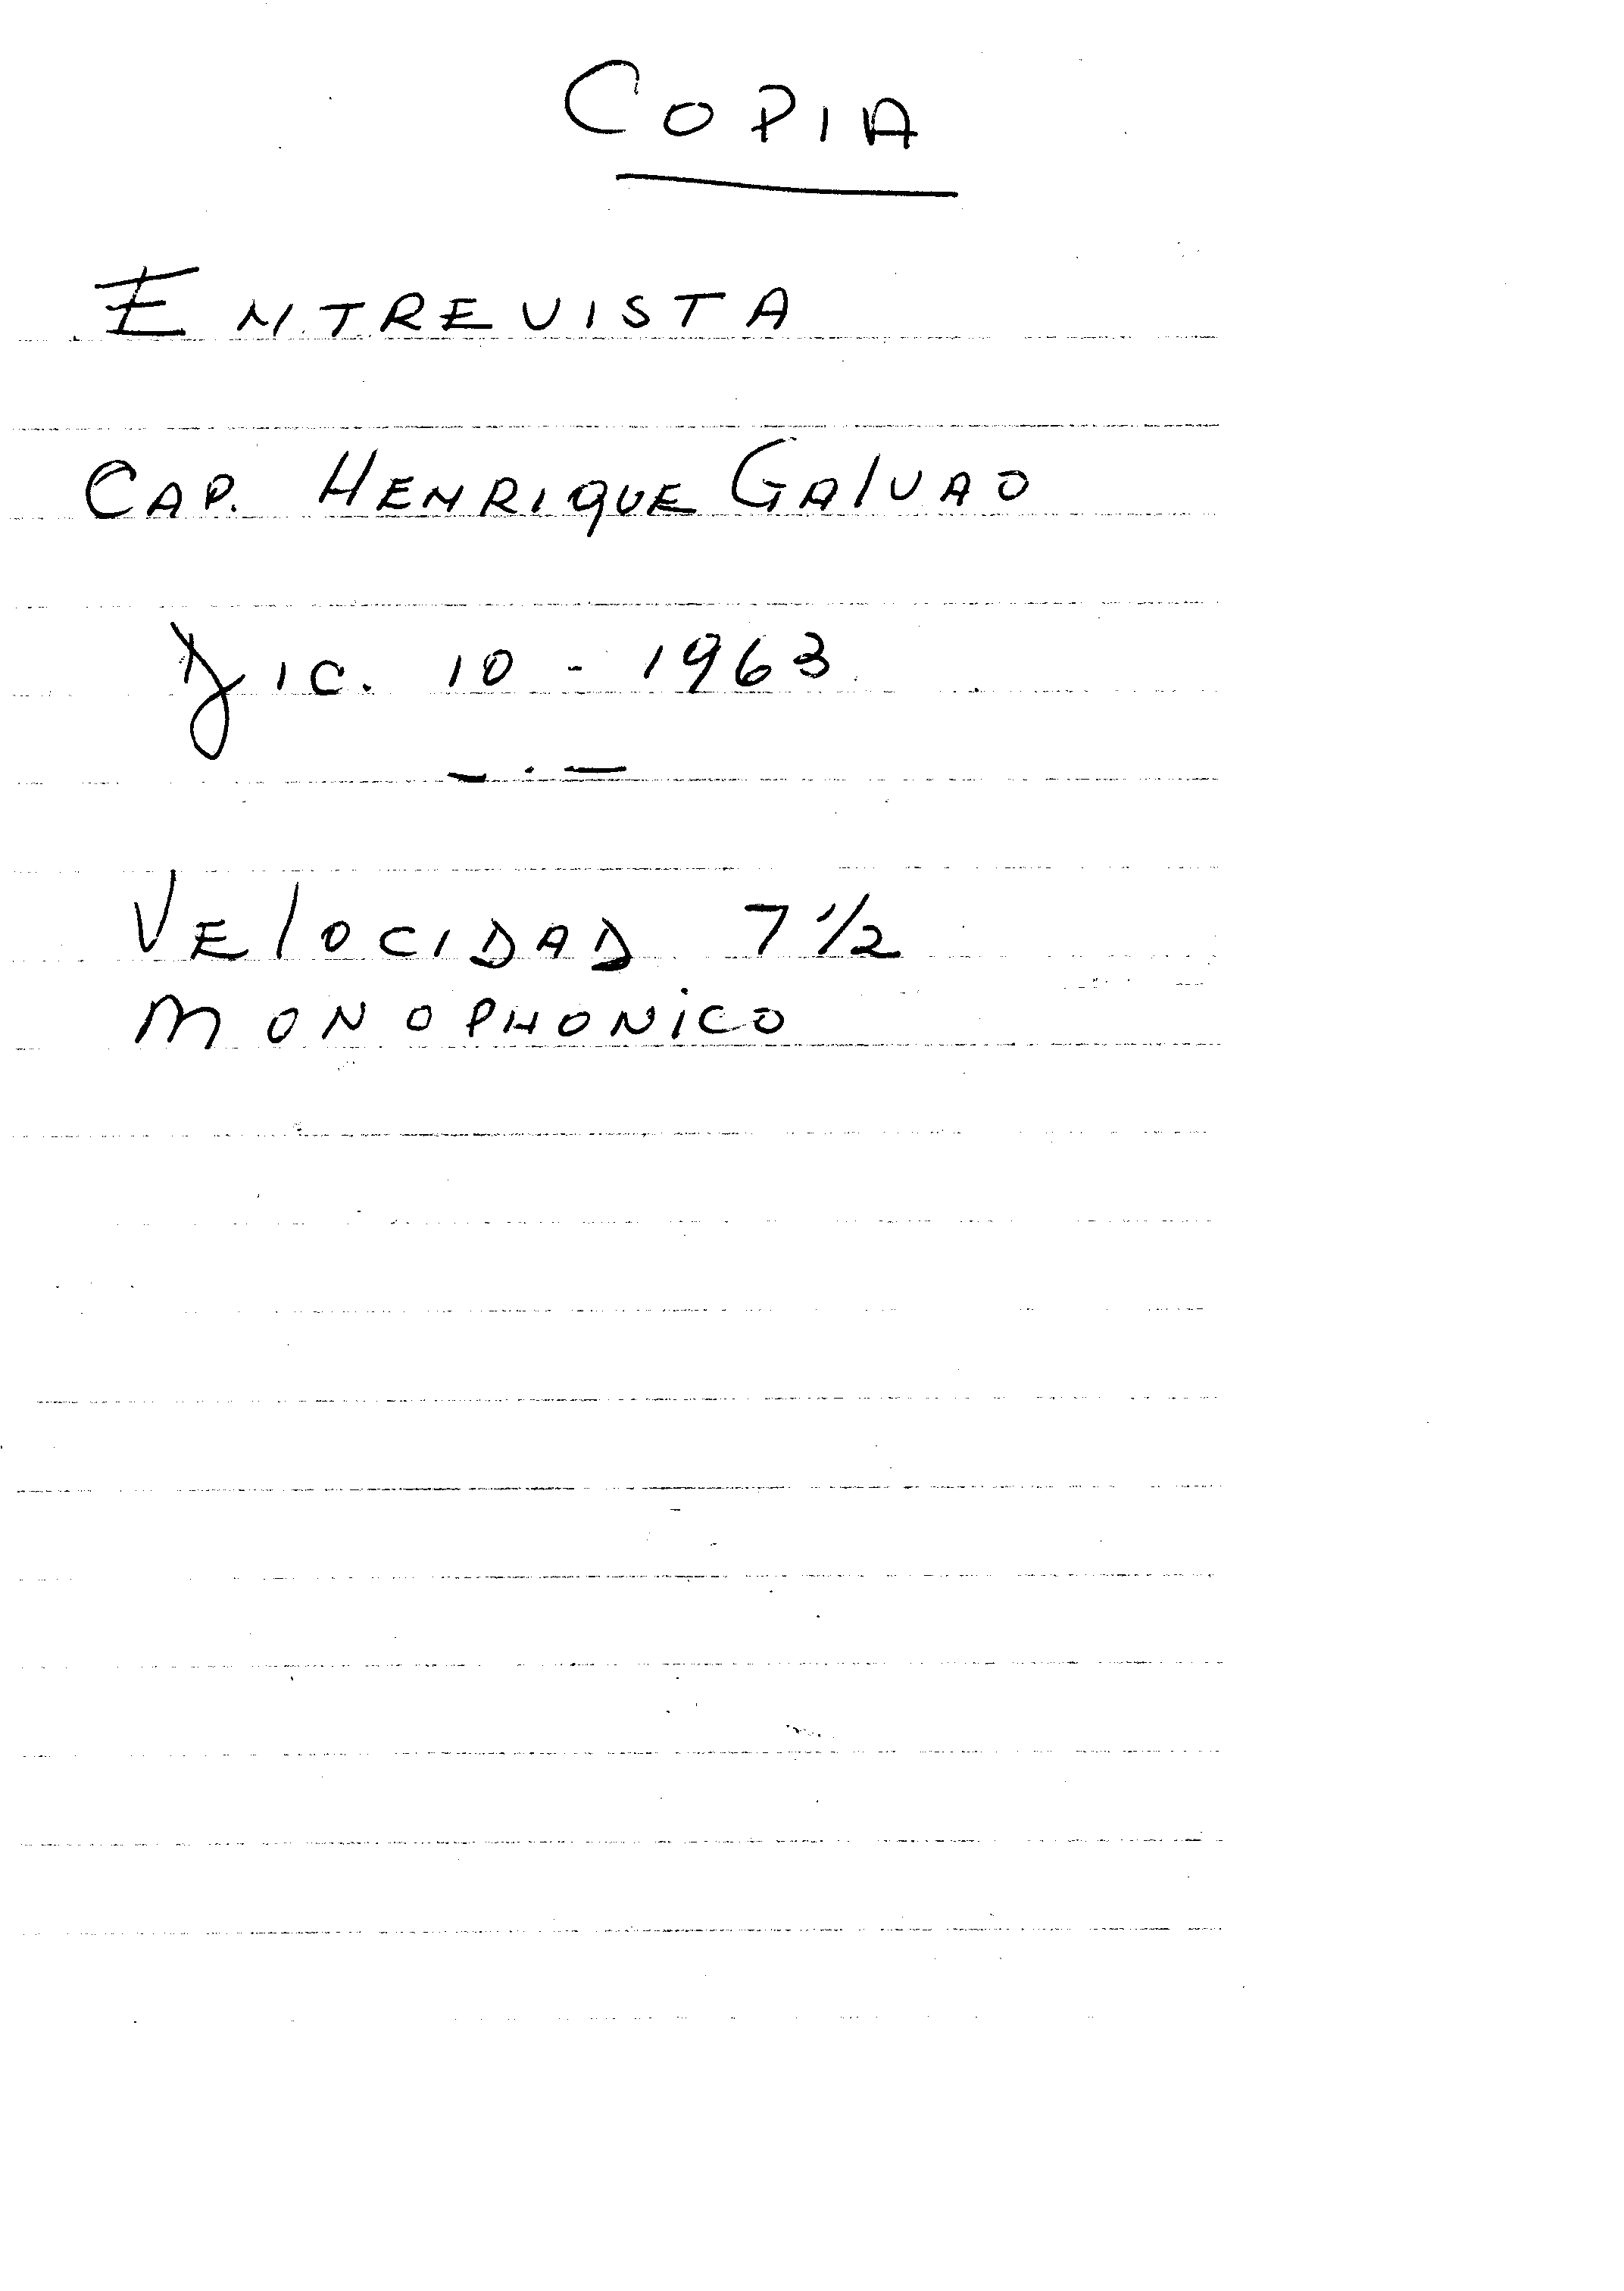 COPIA
ENTREVISTA
CAP. HENRIQUE GALVAO
DIC. 10 - 1963
VELOCIDAD 7 1/2
MONOPHONICO